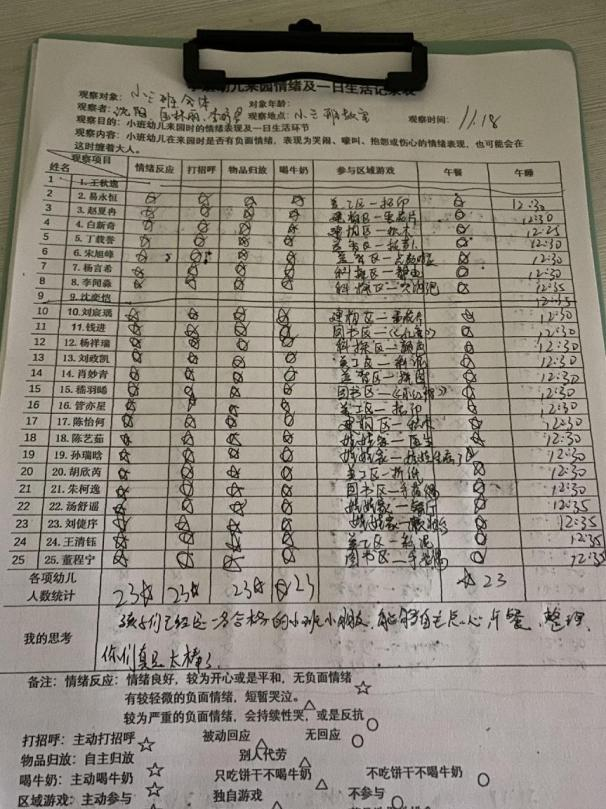 小班幼儿来园情绪及一日生活记录表
观察对象：小三班全体 对象年龄：
观察者：沈阳 观察地点：小三班教室 观察时间：11.18
观察目的：小班幼儿来园时的情绪表现及一日生活环节
观察内容：小班幼儿在来园时是否有负面情绪，表现为哭闹、嚎叫、抱怨或伤心的情绪表现，也可能会在
这时缠着大人。
观察项目 姓名 情绪反应 打招呼 物品归放 喝牛奶 参与区域游戏 午餐 午睡
1 1.王秋逸
2 2.易永恒 ☆ ☆ ☆ ☆ 美工区—拓印 ☆ 12:30
3 3.赵夏冉 ☆ ☆ ☆ ☆ 建构区—雪花片 ☆ 12:30
4 4.白新奇 ☆ ☆ ☆ ☆ 建构区—积木 ☆ 12:25
5 5.丁载誉 ☆ ☆ ☆ ☆ 益智区— ☆ 12:30
6 6.宋旭峰 ☆ ☆ ☆ ☆ 益智区— ☆ 12:30
7 7.杨言希 ☆ ☆ ☆ ☆ 科探区— ☆ 12:30
8 8.李闻淼 ☆ ☆ ☆ ☆ 科探区— ☆ 12:35
9 9.沈奕恺 12:35
10 10.刘宸瑀 ☆ ☆ ☆ ☆ 建构区—雪花片 ☆ 12:30
11 11.钱进 ☆ ☆ ☆ ☆ 图书区— ☆ 12:30
12 12.杨祥瑞 ☆ ☆ ☆ ☆ 科探区— ☆ 12:30
13 13.刘政凯 ☆ ☆ ☆ ☆ 美工区—彩泥 ☆ 12:30
14 14.肖妙青 ☆ ☆ ☆ ☆ 益智区—拼图 ☆ 12:30
15 15.嵇羽晞 ☆ ☆ ☆ ☆ 图书区— ☆ 12:30
16 16.管亦星 ☆ ☆ ☆ ☆ 美工区—拓印 ☆ 12:30
17 17.陈怡何 ☆ ☆ ☆ ☆ 建构区—积木 ☆ 12:30
18 18.陈艺茹 ☆ ☆ ☆ ☆ 娃娃家—医生 ☆ 12:30
19 19.孙瑞晗 ☆ ☆ ☆ ☆ 娃娃家—娃娃生病了 ☆ 12:30
20 20.胡欣芮 ☆ ☆ ☆ ☆ 美工区—折纸 ☆ 12:30
21 21.朱柯逸 ☆ ☆ ☆ ☆ 图书区—手偶 ☆ 12:30
22 22.汤舒谣 ☆ ☆ ☆ ☆ 娃娃家— ☆ 12:35
23 23.刘倢序 ☆ ☆ ☆ ☆ 娃娃家— ☆ 12:35
24 24.王清钰 ☆ ☆ ☆ ☆ 美工区—彩泥 ☆ 12:35
25 25.董程宁 ☆ ☆ ☆ ☆ 图书区—手偶 ☆ 12:35
各项幼儿
人数统计 23☆ 23☆ 23☆ ☆23 ☆23
我的思考 孩子们已经是一名合格的小班小朋友，能够自主点心、午餐、整理，
你们真是太棒了。
备注：情绪反应：情绪良好，较为开心或是平和，无负面情绪☆
有较轻微的负面情绪，短暂哭泣。△
较为严重的负面情绪，会持续性哭，或是反抗○
打招呼：主动打招呼☆ 被动回应△ 无回应○
物品归放：自主归放☆ 别人代劳△
喝牛奶：主动喝牛奶☆ 只吃饼干不喝牛奶△ 不吃饼干不喝牛奶○
区域游戏：主动参与☆ 独自游戏△ 不参与○